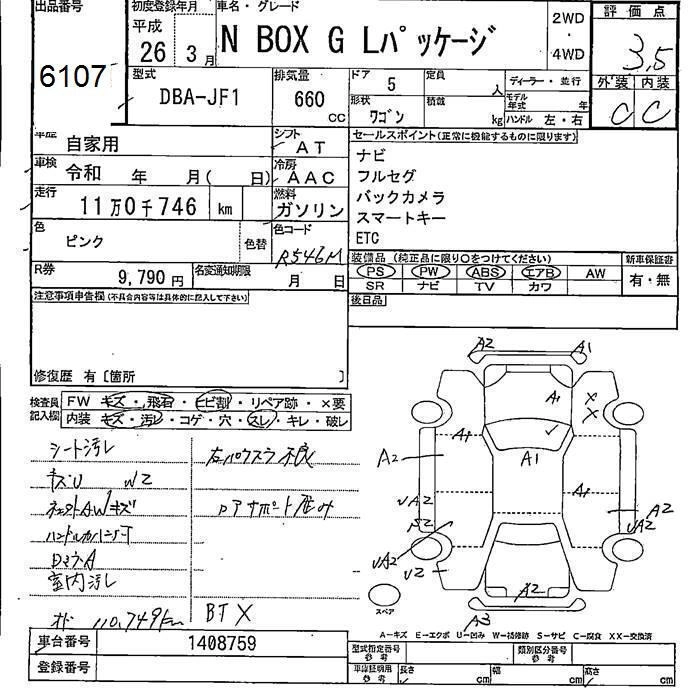 出品番号
6107
初度登録年月
平成
26 3月
車名・グレード
N BOX G Lパッケージ
2WD
・
4WD
評価点
3,5
外装 内装
C C
型式
DBA-JF1
排気量
660
CC
ドア
5
定員
人
形状
ワゴン
積載
kg
ディーラー・並行
モデル年式 年
ハンドル 左・右
車歴
自家用
シフト
AT
車検
令和 年 月( 日)
冷房
AAC
走行
11万0千746 km
燃料
ガソリン
色
ピンク
色替
色コード
R546M
R券
9,790円
名変通知期限
月 日
セールスポイント(正常に機能するものに限ります)
ナビ
フルセグ
バックカメラ
スマートキー
ETC
装備品 (純正品に限り○をつけてください)
PS PW ABS エアB AW
SR ナビ TV カワ
新車保証書
有・無
後日品
注意事項申告欄(不具合内容等は具体的に記入して下さい)
修復歴 有〔箇所
検査員記入欄
FW キズ・飛石・ヒビ割・リペア跡・×要
内装 キズ・汚レ・コゲ・穴・スレ・キレ・破レ
シート汚レ
キズU W2
室内汚レ
110,749km
BT X
左パワスラ不良
A2 A1
A1 X
X
A1 A1
A2 A1
A1 A2
A2
A2
A3
スペア
A-キズ E-エクボ U-凹み W-補修跡 S-サビ C-腐食 XX-交換済
車台番号
1408759
登録番号
型式指定番号
参考
類別区分番号
参考
車庫証明用
参考
長さ cm
幅 cm
高さ cm